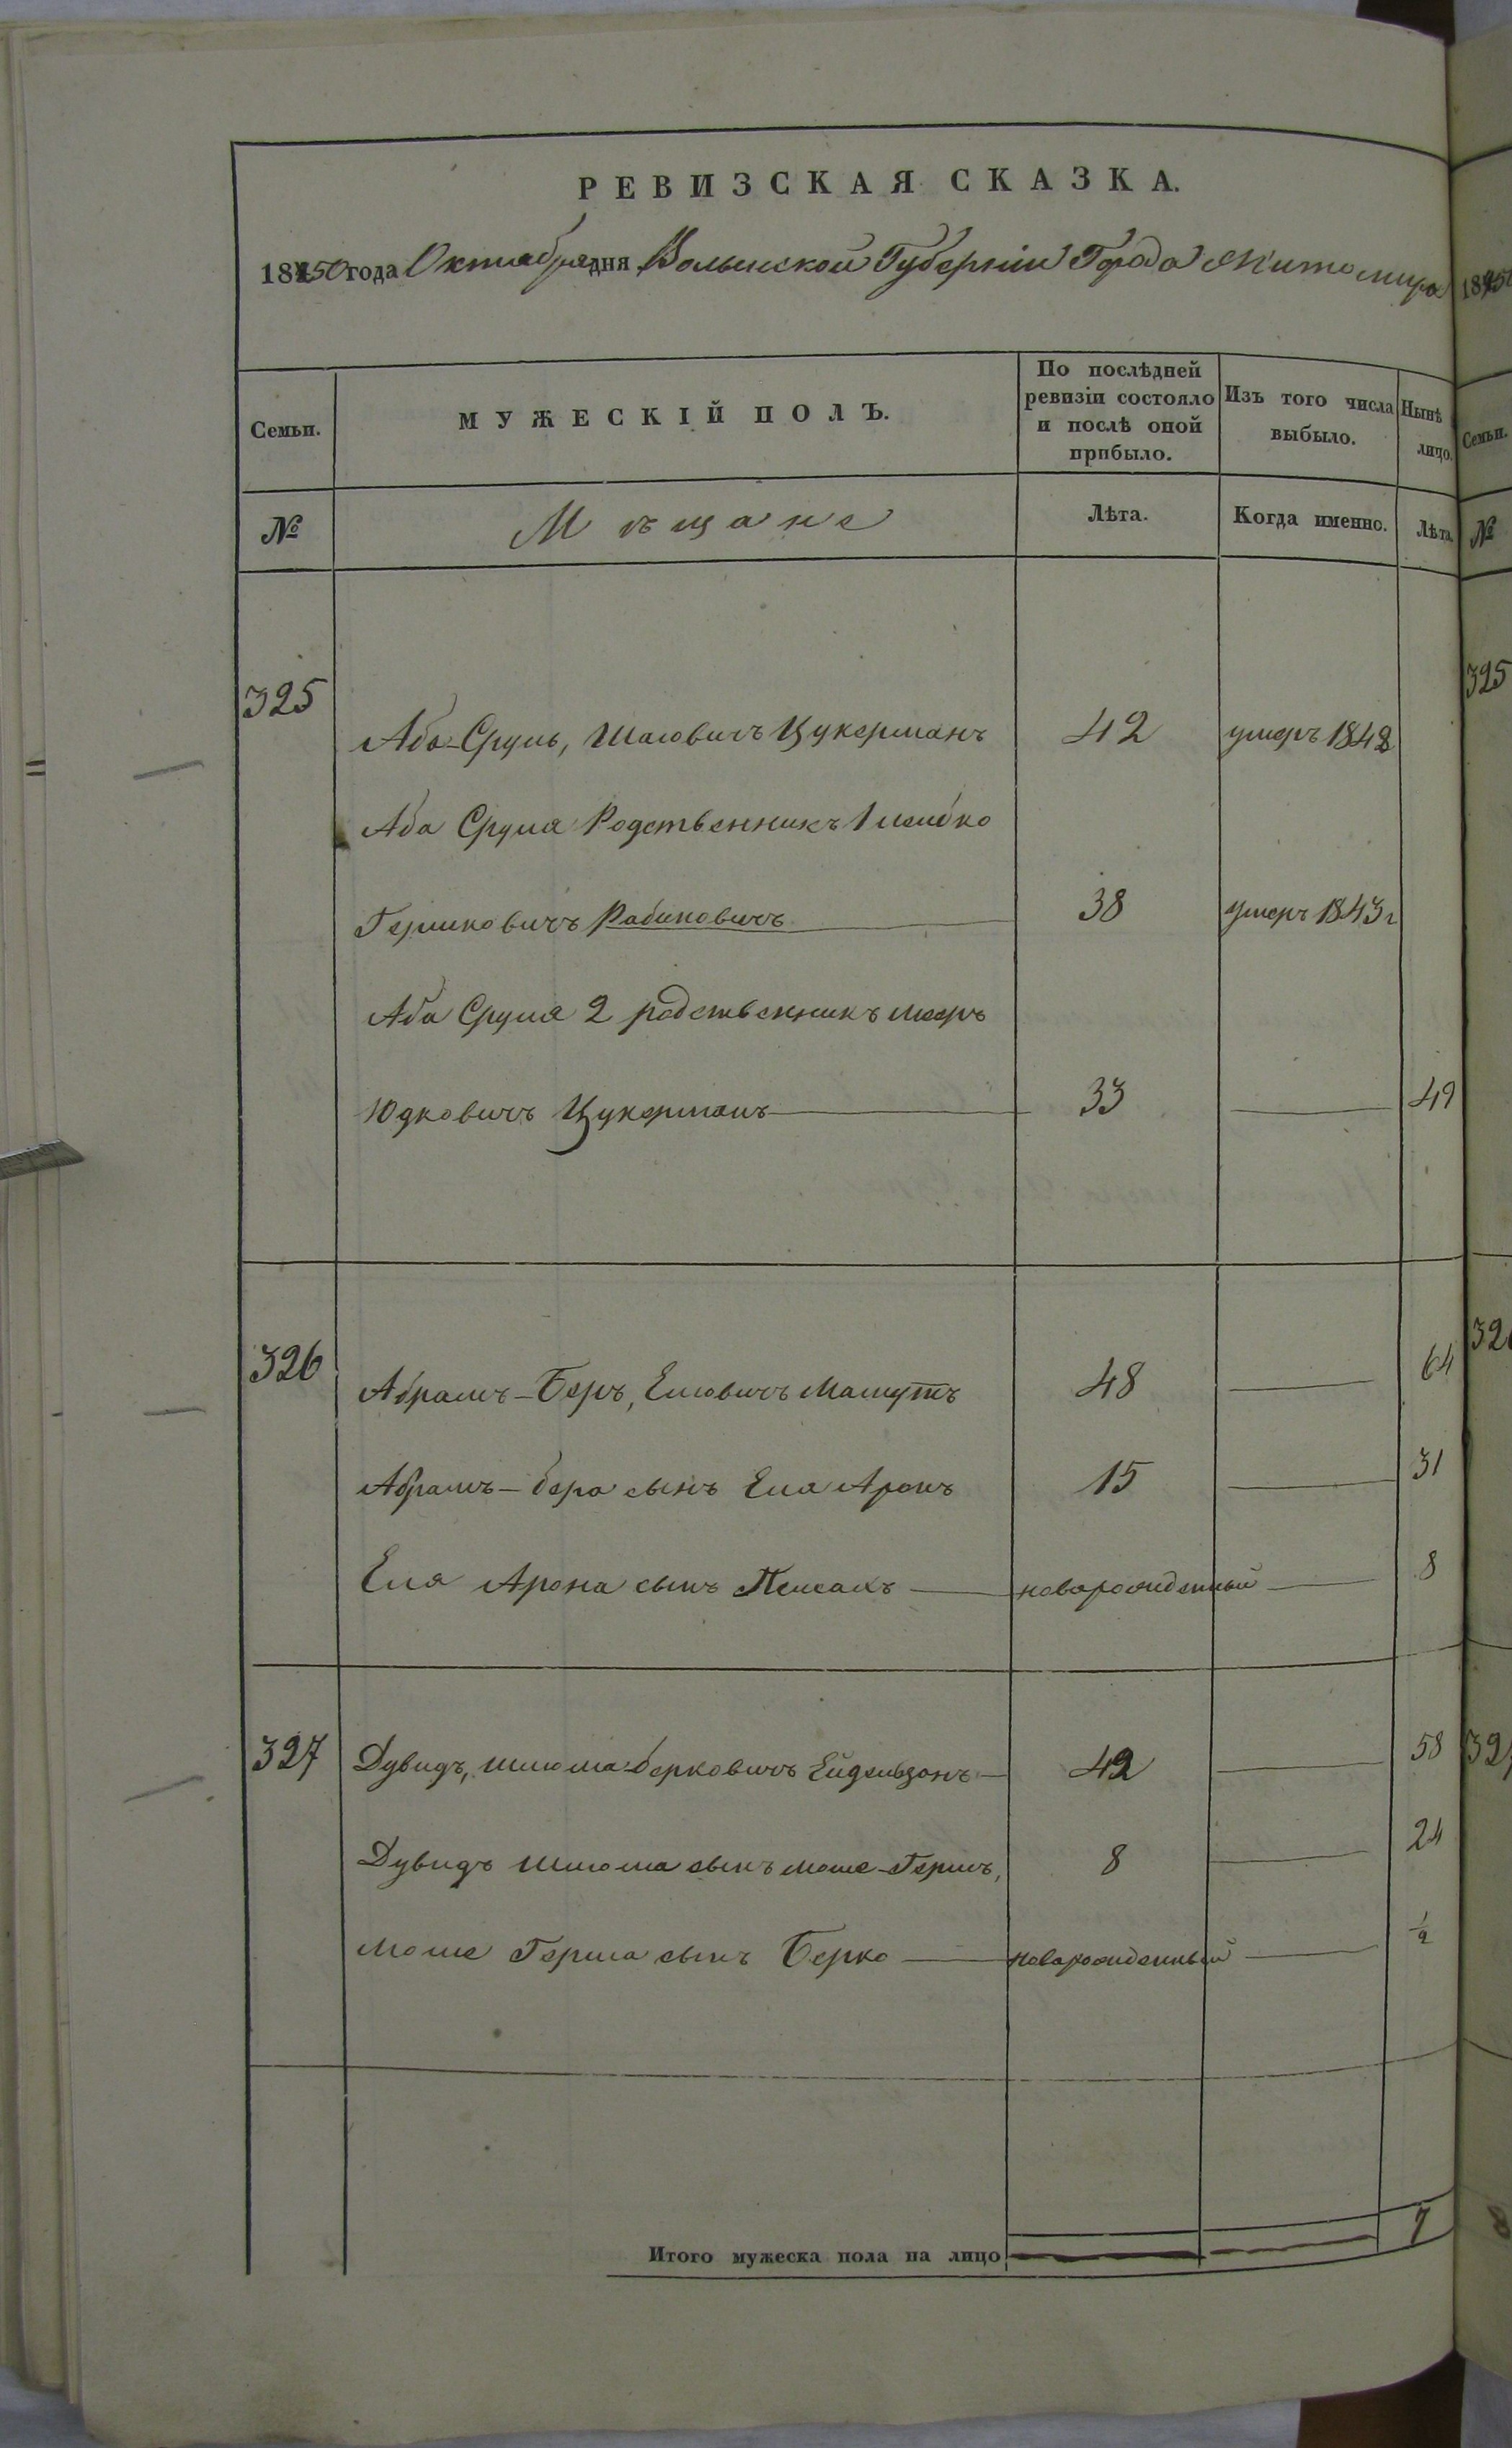 РЕВИЗСКАЯ СКАЗКА.
1850 года Октября дня Волынской Губерніи Города Житомира
Семьи. МУЖЕСКІЙ ПОЛЪ. По послѣдней ревизіи состояло и послѣ оной прибыло. Изъ того числа выбыло. Нынѣ лицо.
№ Мѣщане Лѣта. Когда именно. Лѣта.
325
Аба-Сруль, Шаевичъ Цукерманъ 42 умеръ 1848
Аба Сруля Родственникъ 1 Лейбко
Гершковичъ Рабиновичъ 38 умеръ 1843 г
Аба Сруля 2 родственникъ Мееръ
Юдковичъ Цукерманъ 33 49
326
Абрамъ-Беръ, Елевичъ 48 64
Абрамъ-Бера сынъ Еля Аронъ 15 31
Еля Арона сынъ Пейсахъ новорожденный 8
327 Дувидъ, Шлома Берковичъ Ейдельзонъ 42 58
Дувидъ Шлома сынъ Моше-Гершъ, 8 24
Моше Герша сынъ Берко новорожденный 1/2
Итого мужеска пола на лицо 7
1850
Семьи.
№
325
326
327
8